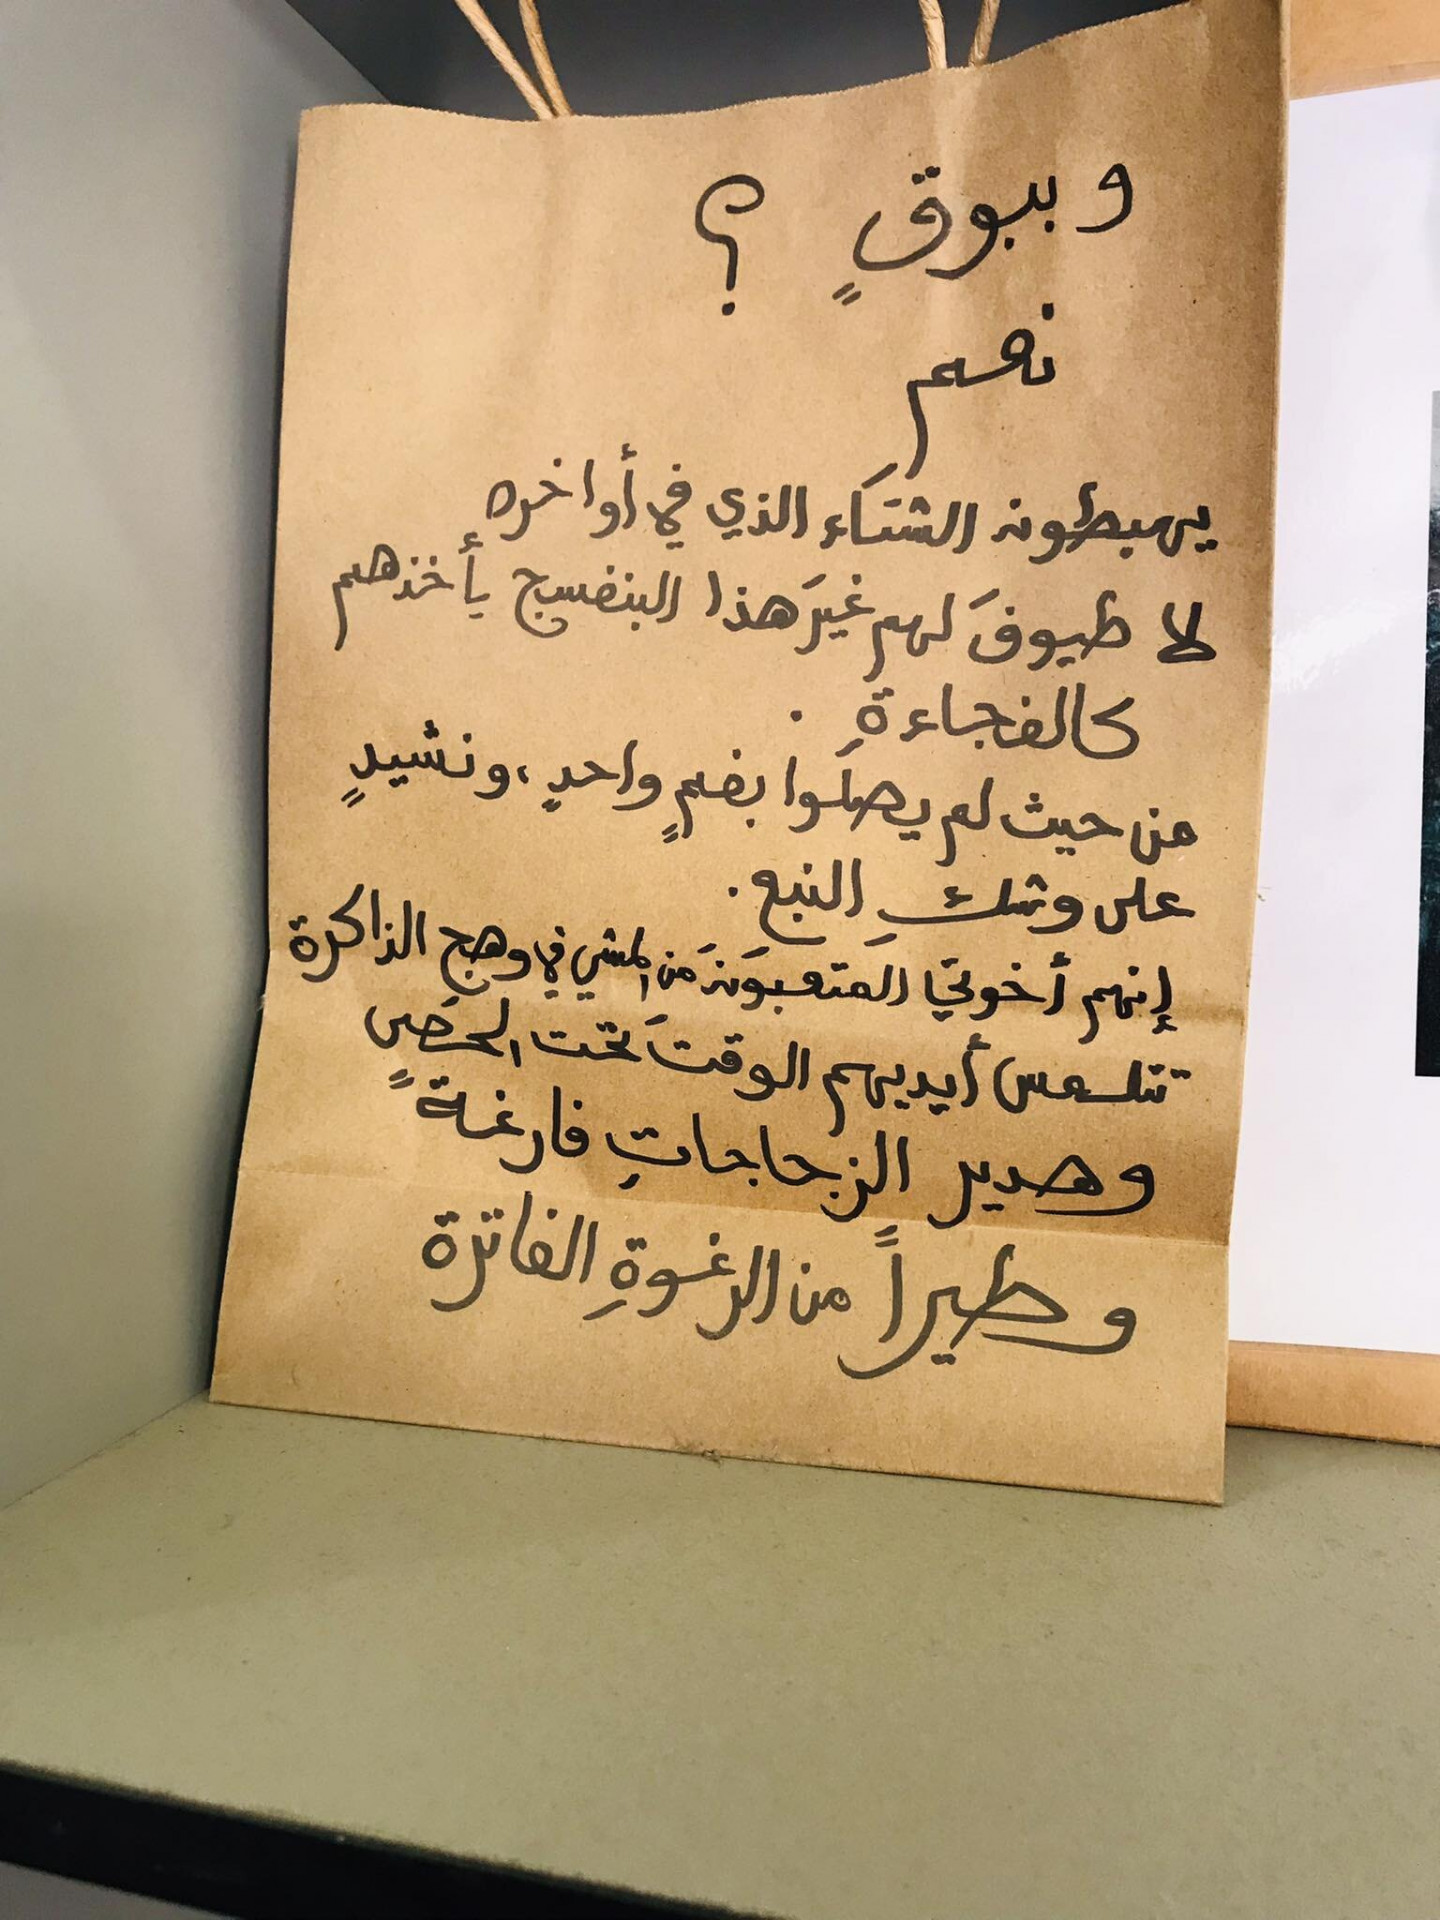 وببوقٍ ؟
نعم
يهبطون الشتاء الذي في أواخره
لا طيوفَ لهم غيرَ هذا البنفسج يأخذهم
كالفجاءةِ .
من حيث لم يصلوا بفمٍ واحدٍ ، ونشيدٍ
على وشكِ النبع .
إنهم أخوتي المتعبونَ من المشي في وهج الذاكرة
تتلمس أيديهم الوقتَ تحت الحصى
وهدير الزجاجاتِ فارغةً
وطيراً من الرغوةِ الفاترة